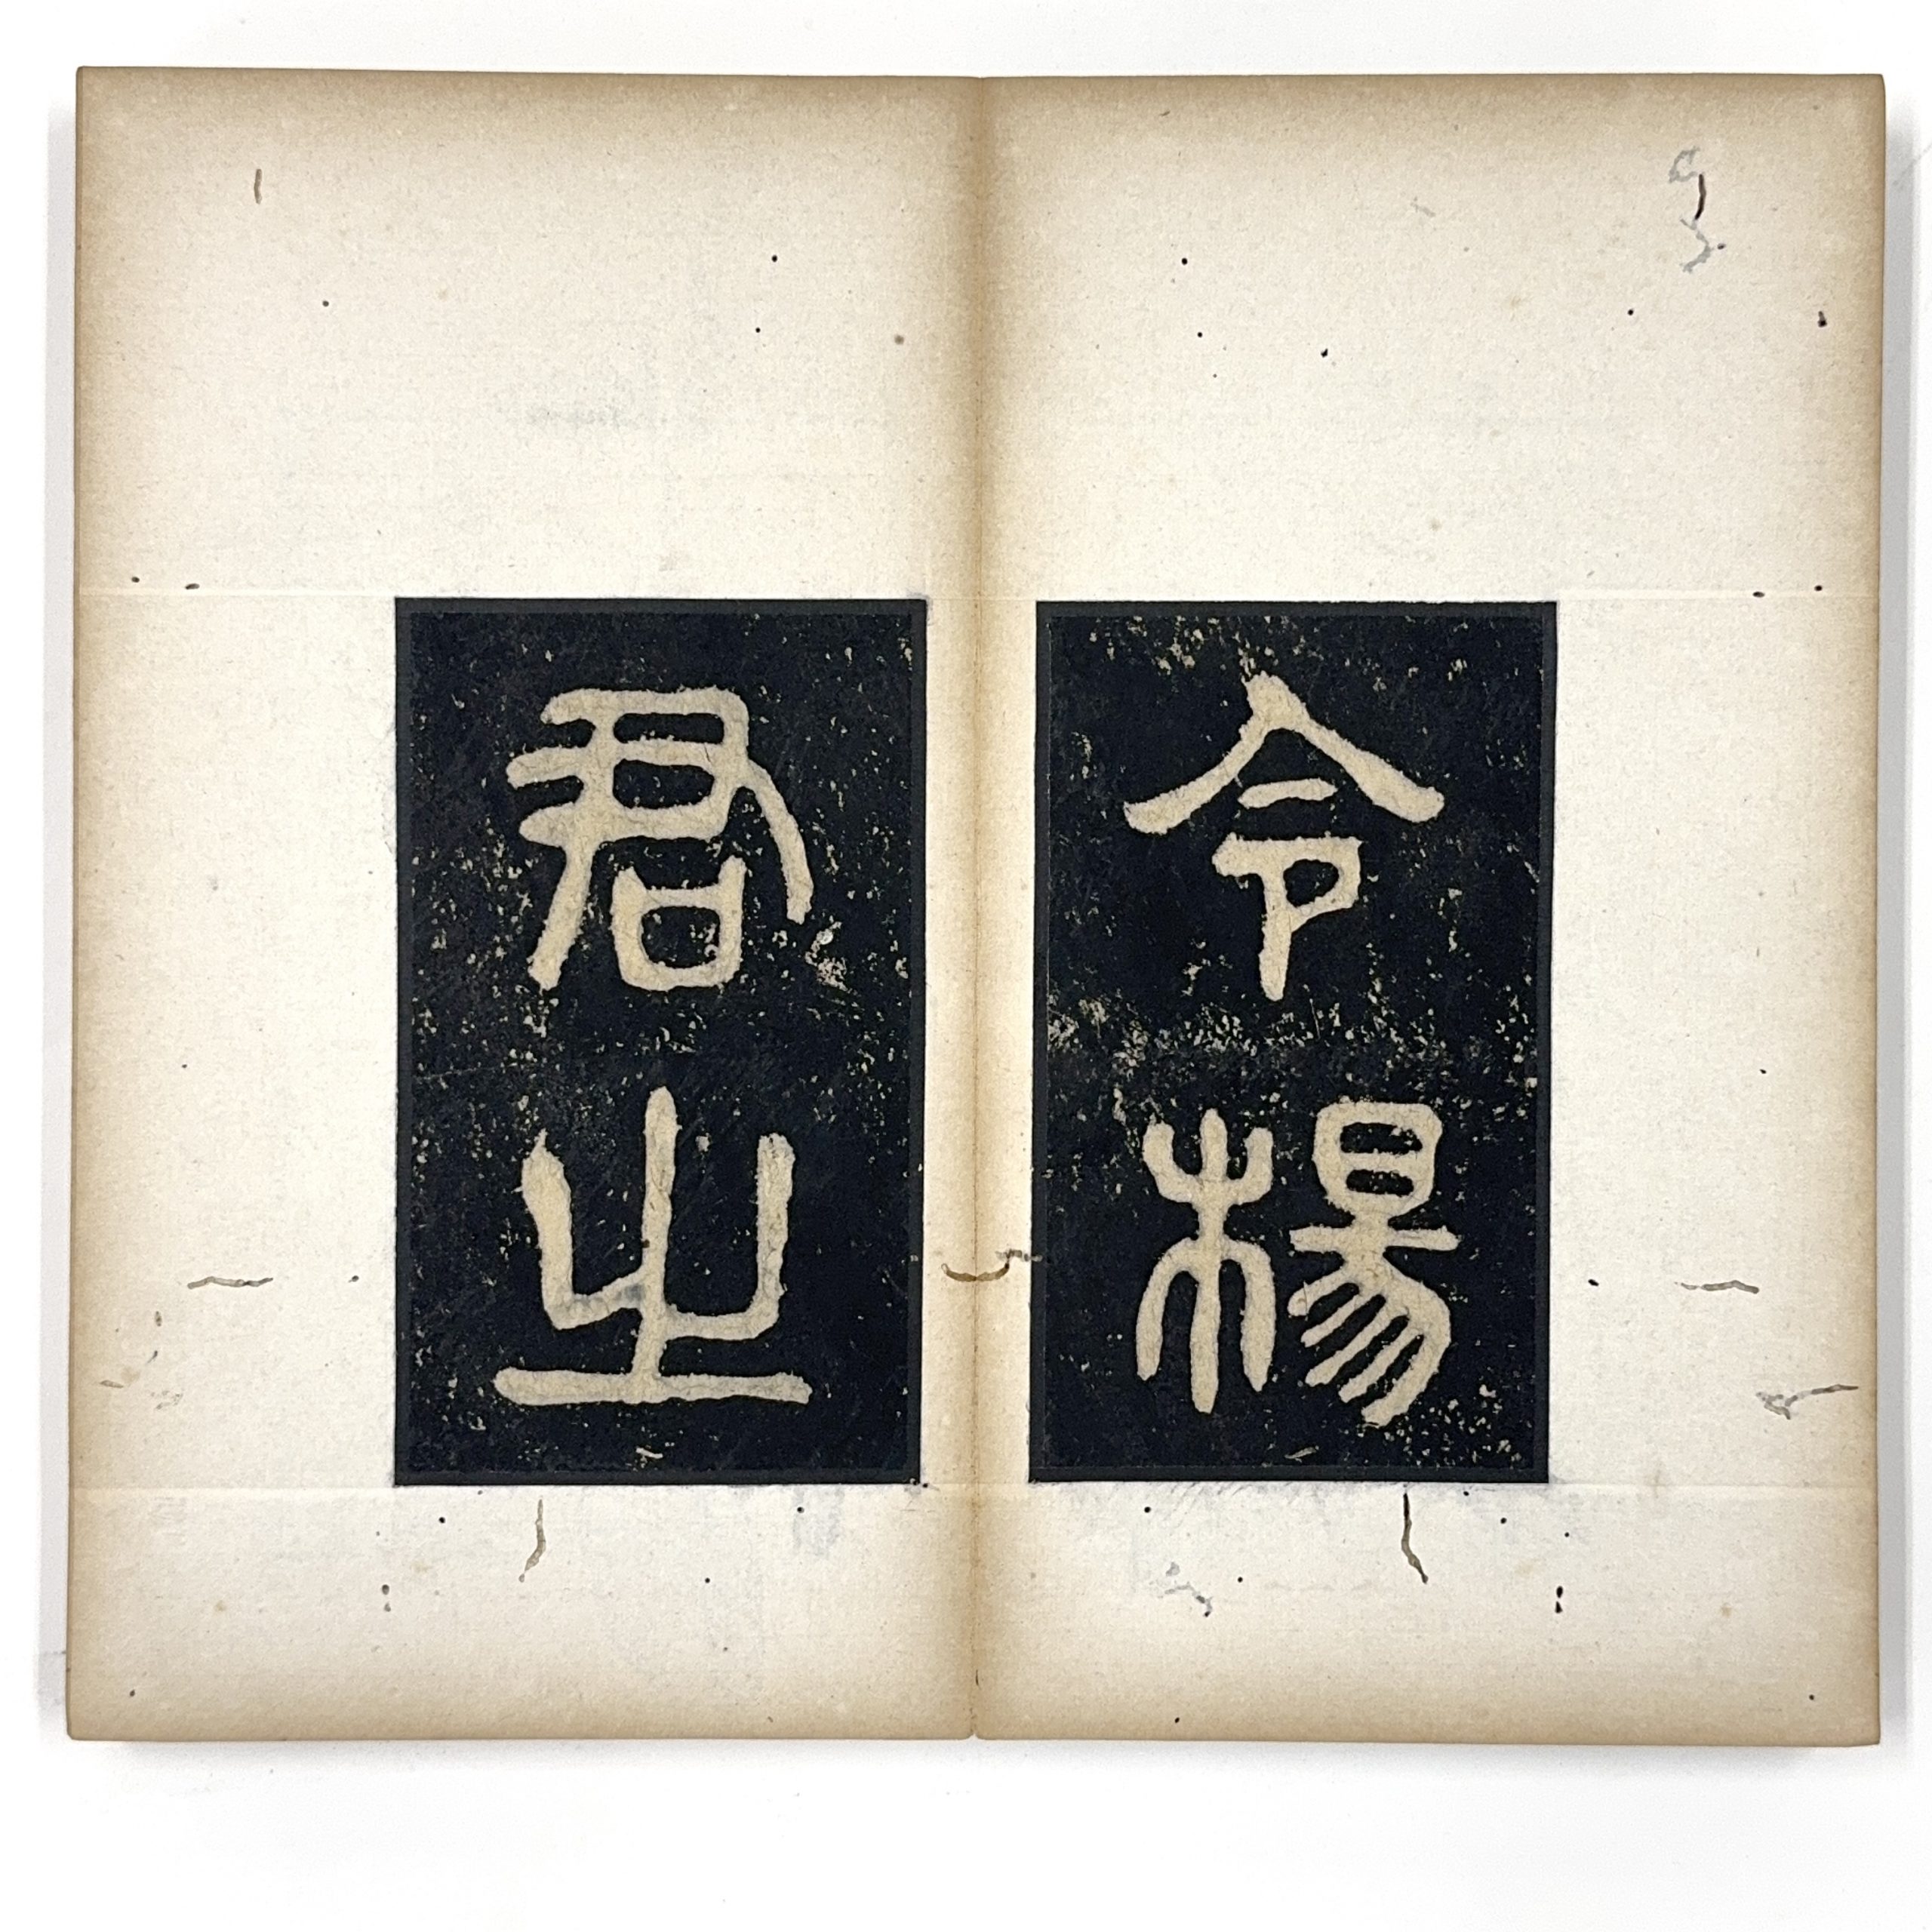 令楊
君之